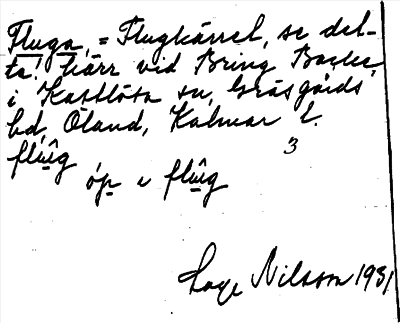 Fluga, = Flugkärret, se det-
ta! Kärr vid Bring Backe,
i Kastlösa sn, Gräsgårds
hd, Öland, Kalmar l.
flûg 3
óp i flûg
Lage Nilsson 1931